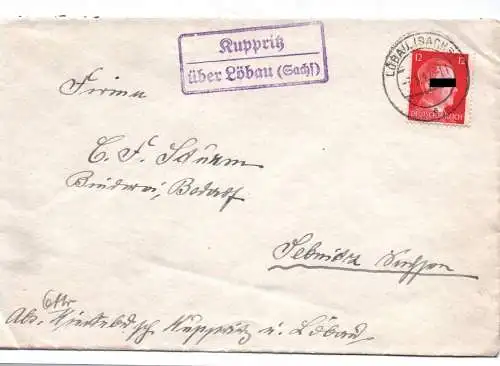 Kuppritz
über Löbau (Sachs)
LÖBAU (SACHS
12 12
DEUTSCHES REICH
Firma
C. F. Sturm
Binderei, Bedarf
Sebnitz Sachsen
Abs. Kuppritz ü. Löbau